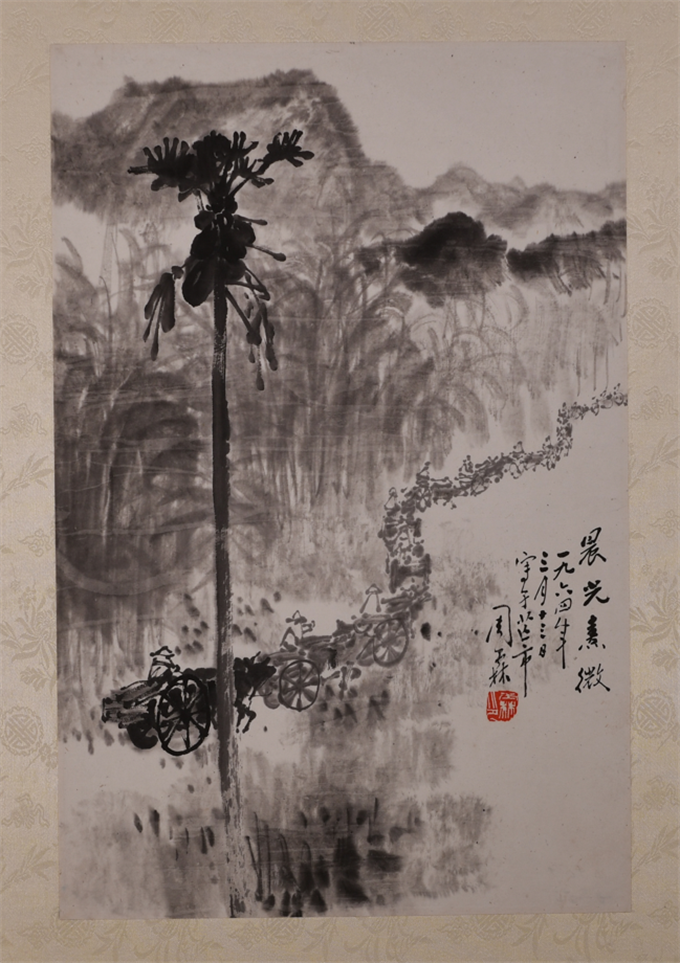 晨光熹微
一九六四年
三月十三日
写于芒市
周霖